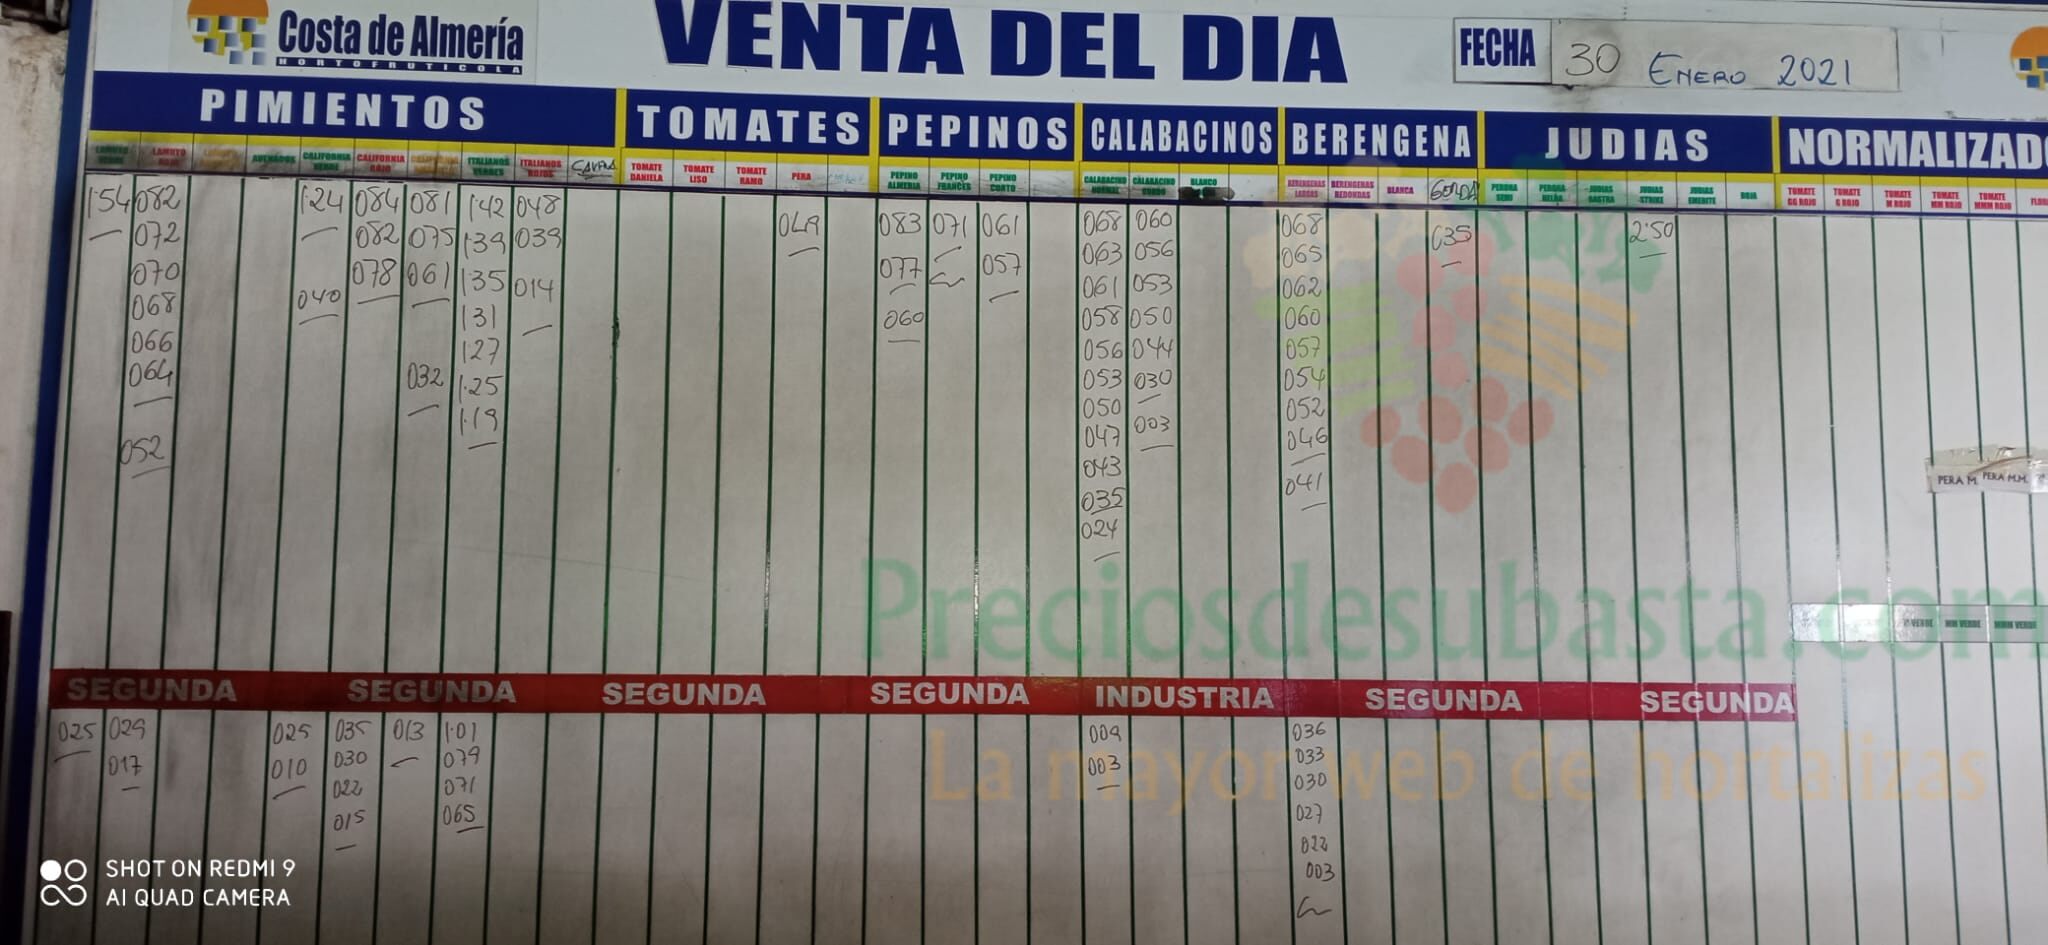 Costa de Almería
HORTOFRUTICOLA
VENTA DEL DIA
FECHA 30 ENERO 2021
PIMIENTOS TOMATES PEPINOS CALABACINOS BERENGENA JUDIAS NORMALIZADO
LAMUYO ROJO CALIFORNIA VERDE CALIFORNIA ROJO ITALIANOS VERDES ITALIANOS ROJOS TOMATE DANIELA TOMATE LISO TOMATE RAMO PERA PEPINO ALMERIA PEPINO FRANCES PEPINO CORTO CALABACINO CALABACINO GORDO BLANCO BERENGENAS LARGAS BERENGENAS REDONDAS BLANCA GORDA PERONA SEMI PERONA HELDA JUDIAS RASTRA JUDIAS STRIKE JUDIAS EMERITE ROJA TOMATE GG ROJO TOMATE G ROJO TOMATE M ROJO TOMATE MM ROJO TOMATE MMM ROJO
1.54 082 1.24 084 081 1.42 048 049 083 071 061 068 060 068 035 2.50
072 082 075 1.39 039 063 056 065
070 040 078 061 1.35 014 077 057 061 053 062
068 1.31 060 058 050 060
066 1.27 056 044 057
064 032 1.25 053 030 054
1.19 050 052
052 047 003 046
043
035 041
024
PERA M. PERA M.M.
Preciosdesubasta.com
VERDE MM VERDE MMM VERDE
SEGUNDA SEGUNDA SEGUNDA SEGUNDA INDUSTRIA SEGUNDA SEGUNDA
025 029 025 035 013 1.01 009 036
017 010 030 079 003 033
022 071 030
015 065 027
022
003
La mayor web de hortalizas
SHOT ON REDMI 9
AI QUAD CAMERA